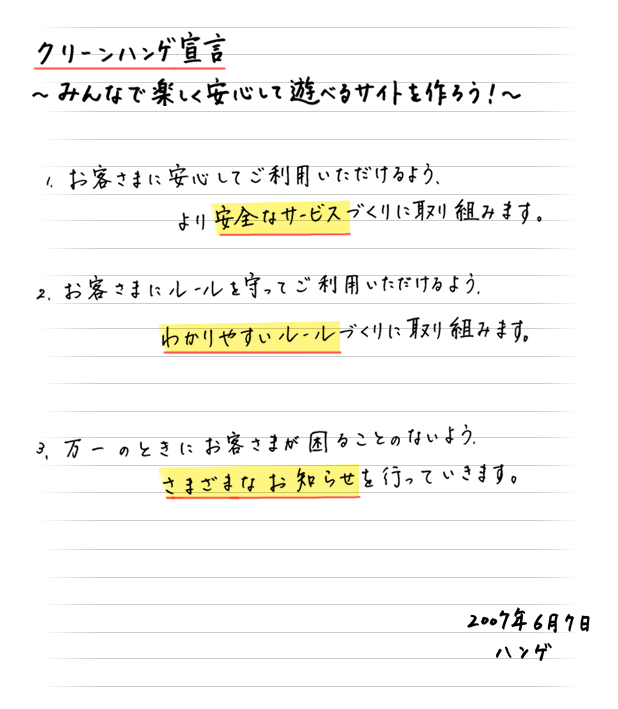 クリーンハンゲ宣言
～みんなで楽しく安心して遊べるサイトを作ろう！～
1. お客さまに安心してご利用いただけるよう、
より安全なサービスづくりに取り組みます。
2. お客さまにルールを守ってご利用いただけるよう、
わかりやすいルールづくりに取り組みます。
3. 万一のときにお客さまが困ることのないよう、
さまざまなお知らせを行っていきます。
2007年6月7日
ハンゲ